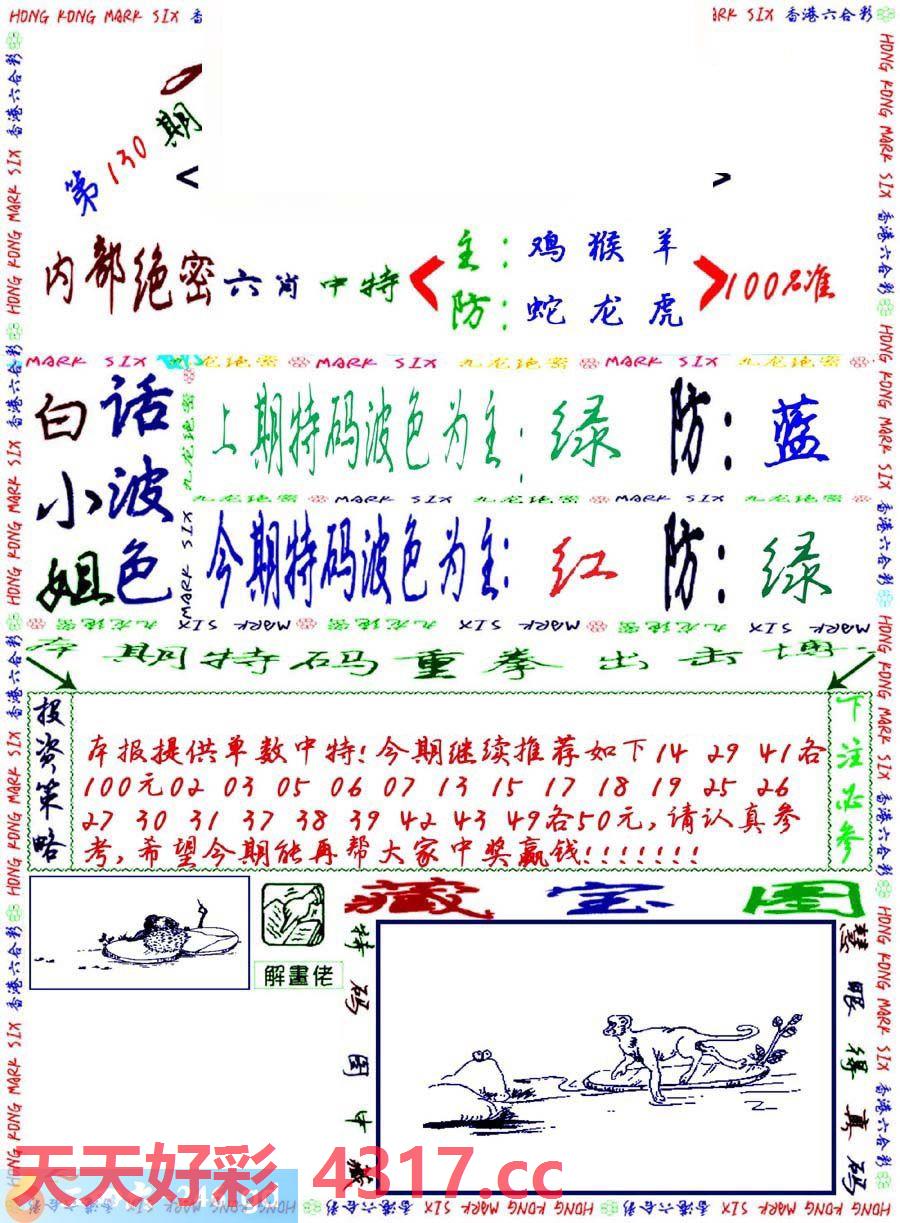 HONG KONG MARK SIX 香
ARK SIX 香港六合彩
第130期
内部绝密六肖中特
主：鸡猴羊
防：蛇龙虎
100%准
MARK SIX 九龙绝密 MARK SIX 九龙绝密 MARK SIX 九龙绝密
白小姐
话波色
上期特码波色为主：绿 防：蓝
九龙绝密 MARK SIX 九龙绝密 MARK SIX 九龙绝密
今期特码波色为主：红 防：绿
本期特码重拳出击
投资策略
本报提供单数中特!今期继续推荐如下14 29 41各
100元02 03 05 06 07 13 15 17 18 19 25 26
27 30 31 37 38 39 42 43 49各50元,请认真参
考,希望今期能再帮大家中奖赢钱!!!!!!!
下注必参
藏宝图
解畫佬
特码图中藏
慧眼得真码
天天好彩 4317.cc
HONG KONG MARK SIX 香港六合彩